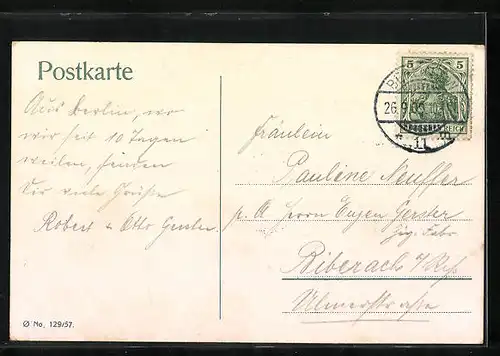 Postkarte
Aus Berlin, wo
wir seit 10 Tagen
weilen, senden
Dir viele Grüße
Robert u Otto
Fräulein
Pauline Neuffer
p. A Herrn Eugen Gerster
Zig. Fabr.
Biberach a/Riß
Ulmerstraße
5 5
REICH
26.9.
Ø No. 129/57.